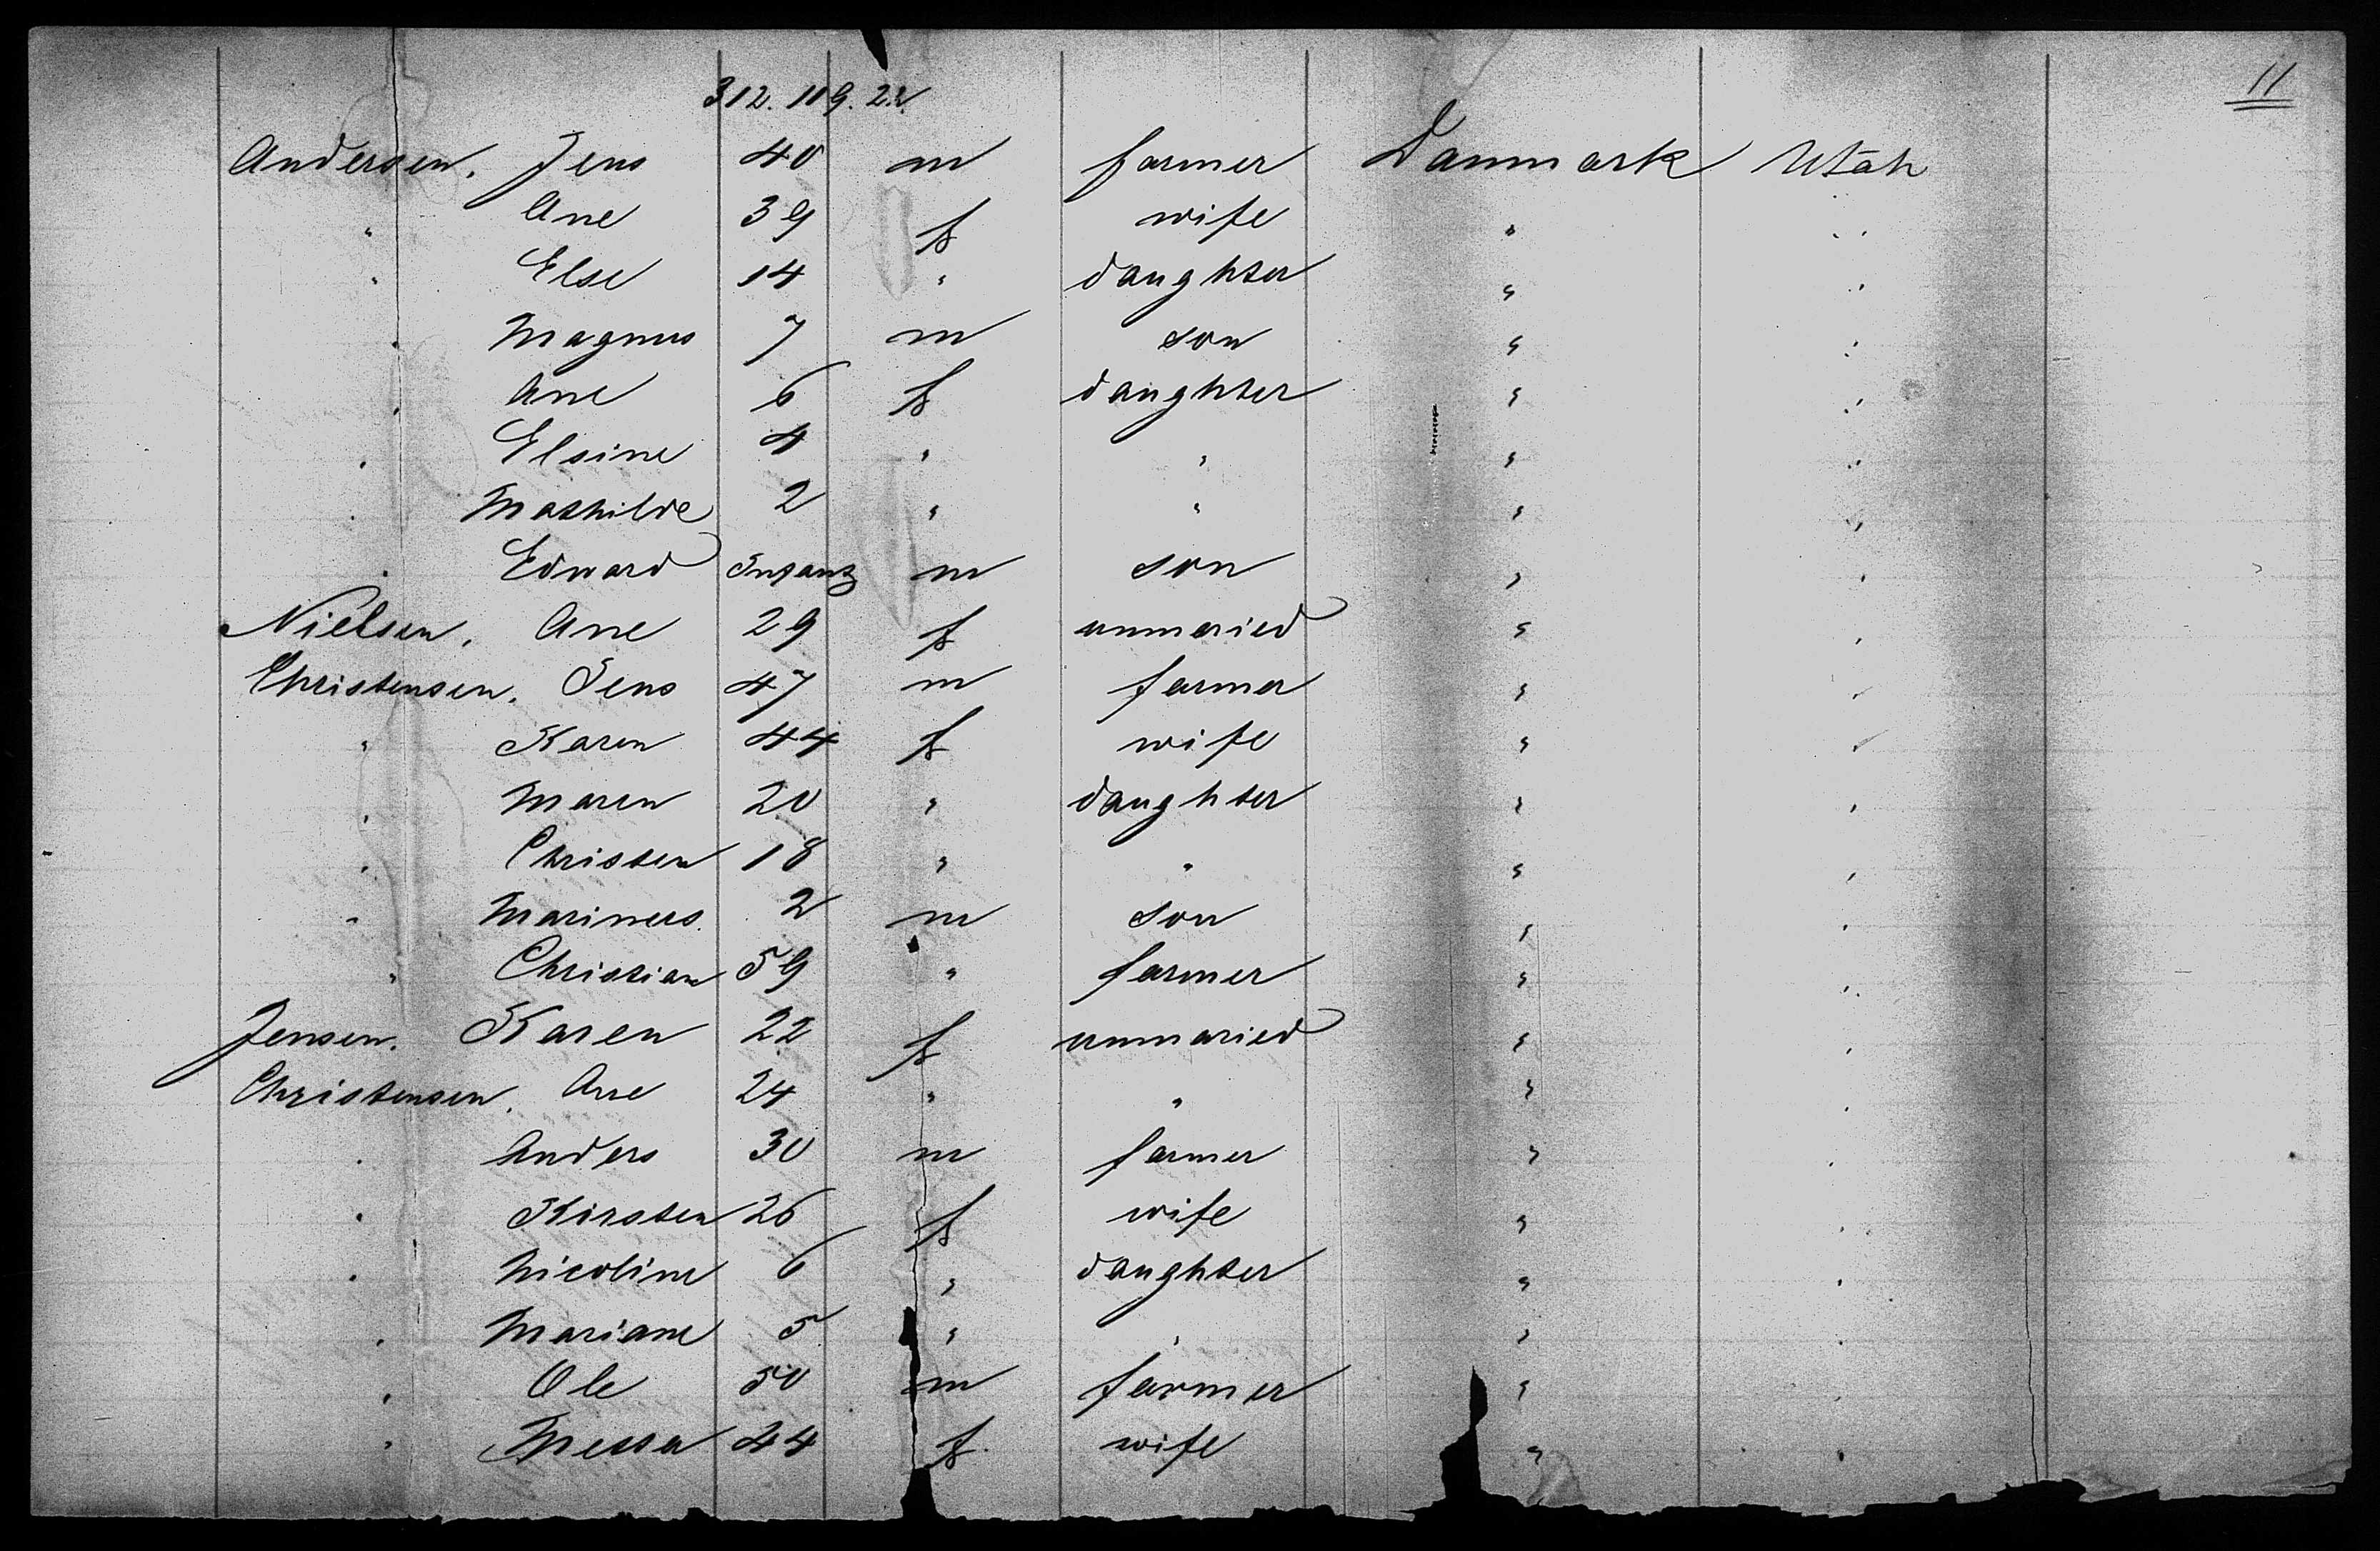 11
312. 109. 22.
Andersen, Jens 40 m farmer Danmark Utah
" Ane 39 f wife " "
" Else 14 " daughter " "
" Magnus 7 m son " "
" Ane 6 f daughter " "
" Elsine 4 " " " "
" Mathilde 2 " " " "
" Edward Infant m son " "
Nielsen, Ane 29 f unmaried " "
Christensen, Jens 47 m farmer " "
" Karen 44 f wife " "
" Maren 20 " daughter " "
" Christen 18 " " " "
" Marinus 2 m son " "
" Christian 59 " farmer " "
Jensen. Karen 22 f unmaried " "
Christensen, Ane 24 " " " "
" Anders 30 m farmer " "
" Kirsten 26 f wife " "
" Nicoline 6 " daughter " "
" Mariane 5 " " " "
" Ole 50 m farmer " "
" 44 f wife " "